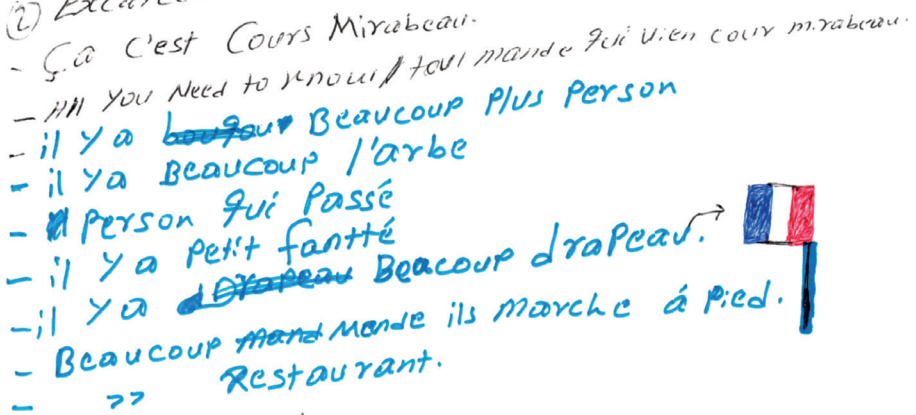 ②
- Ça C'est Cours Mirabeau.
- All You Need to know / tout mande qui vien cour mirabeau.
- il ya Beaucoup Plus Person
- il ya Beaucoup l'arbe
- Person qui Passé
- il ya Petit fantté
- il ya Beacoup drapeau. →
- Beaucoup Mande ils marche á Pied.
- >> Restaurant.